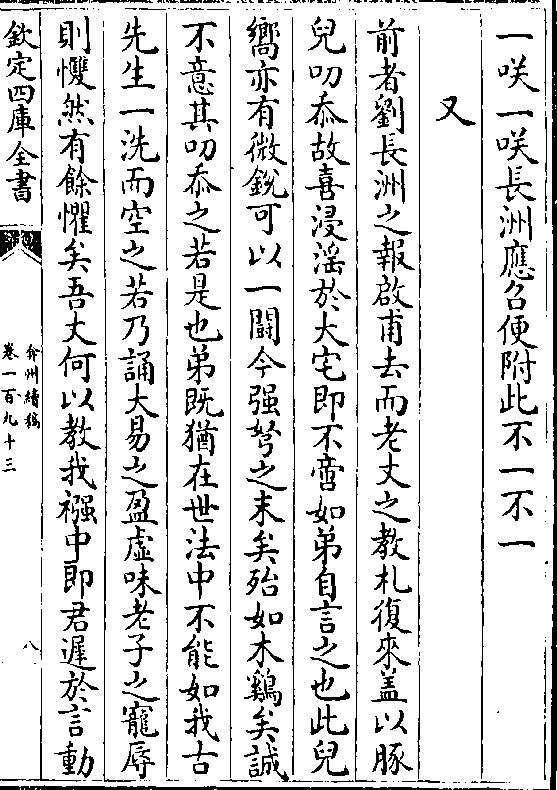 一咲一咲長洲應召便附此不一不一
又
前者劉長洲之報啟甫去而老丈之教札復來盖以豚
兒叨忝故喜浸淫於大宅即不啻如弟自言之也此兒
嚮亦有微銳可以一鬬今强弩之末矣殆如木鷄矣誠
不意其叨忝之若是也弟既猶在世法中不能如我古
先生一洗而空之若乃誦大易之盈虛味老子之寵辱
則戄然有餘懼矣吾丈何以教我襁中即君遲於言動
欽定四庫全書
弇州續稿
卷一百九十三
八